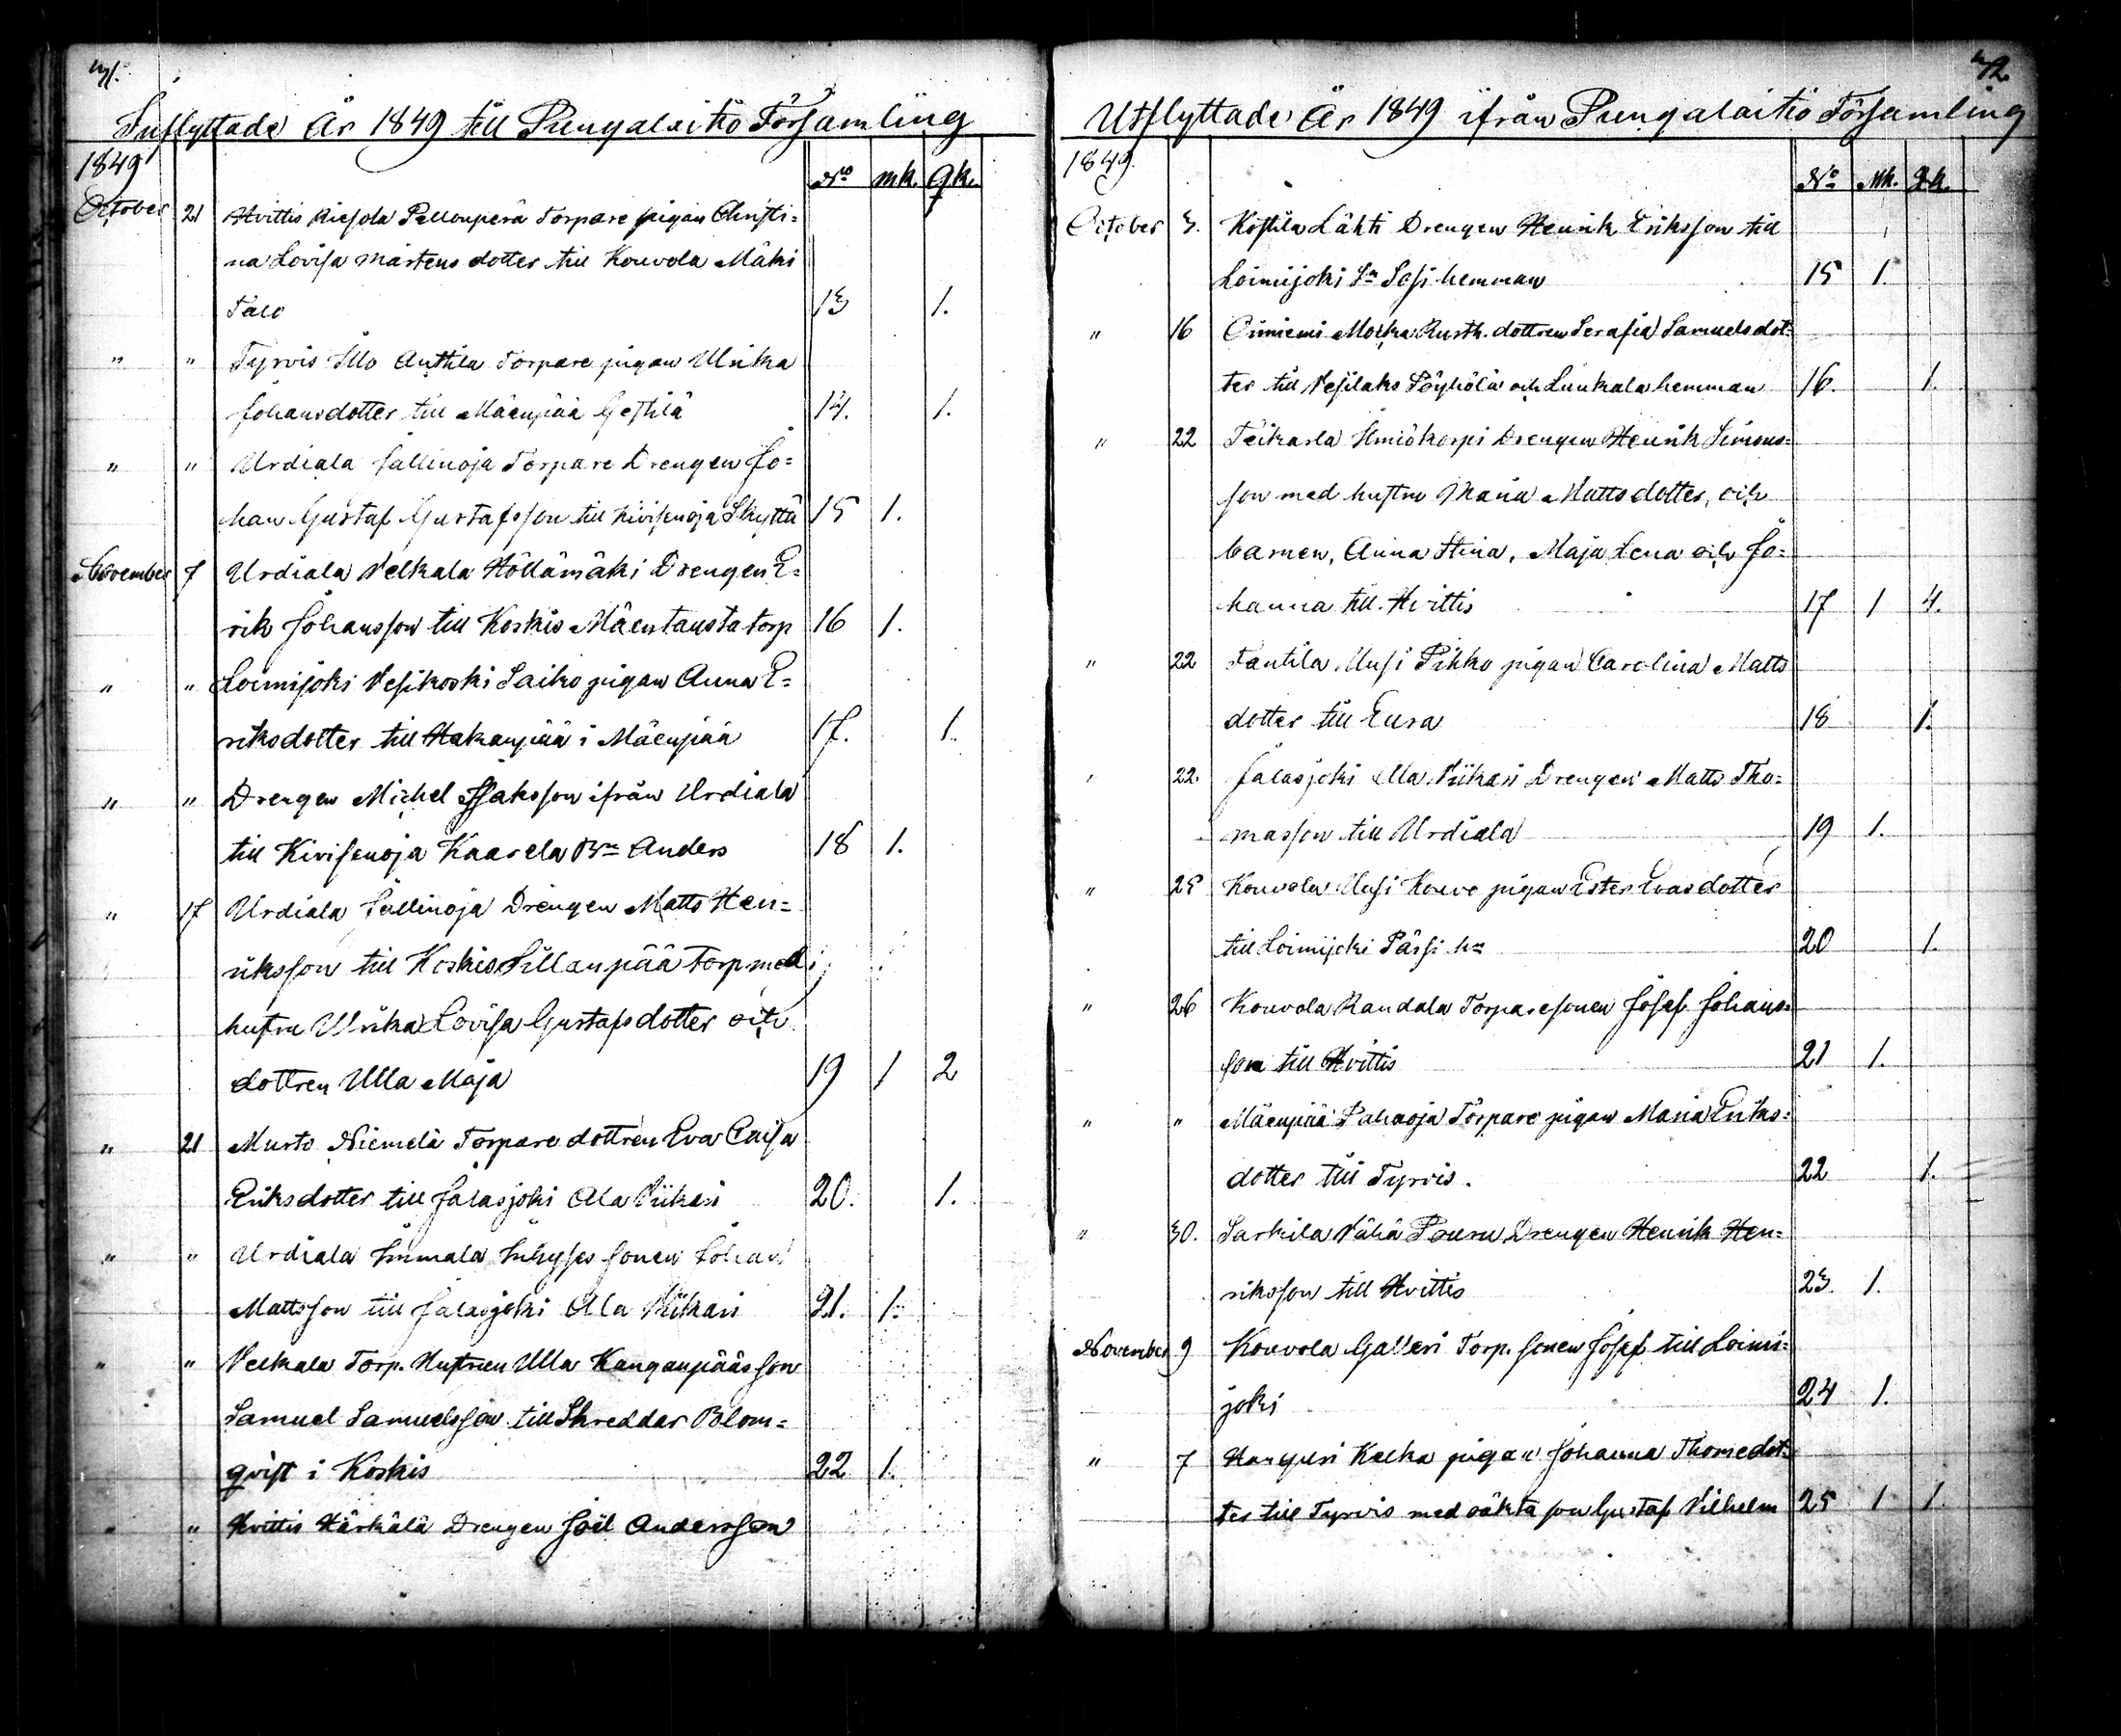 71.
Inflyttade År 1849 till Pungalaitio Församling
1849 No mk. qk.
October 21 Hvittis Riesola Pellonperä Torpare pigan Christi=
na Lovisa Mårtens dotter till Kouvola Mäki
Talo 13 1.
" " Tyrvis Illo Anttila Torpare pigan Ulrika
Johansdotter till Mäenpää Gestilä 14. 1.
" " Urdiala Jallinoja Torpare Drengen Jo=
han Gustaf Gustafsson till Kivisenoja Skyttä 15 1.
November 7 Urdiala Velkala Höllämäki Drengen E=
rik Johansson till Koskis Mäentausta torp 16 1.
" " Loimijoki Vesikoski Saiko pigan Anna E=
riksdotter till Hakanpää i Mäenpää 17. 1.
" " Drengen Michel Isaksson ifrån Urdiala
till Kivisenoja Kaarela Bn Anders 18 1.
" 17 Urdiala Jallinoja Drengen Matts Hen=
riksson till Koskis Sillanpää Torp med
hustru Ulrika Lovisa Gustafsdotter och
dottren Ulla Maja 19 1 2
" 21 Murto Niemelä Torpare dottren Eva Caisa
Eriksdotter till Jalasjoki Ala Viikari 20. 1.
" " Urdiala Immala Inhyses sonen Johan
Mattsson till Jalasjoki Ala Viikari 21. 1.
" " Velkala Torp. Hustrun Ulla Kangaupääs son
Samuel Samuelsson till Skreddar Blom=
qvist i Koskis 22 1.
" " Hvittis Härkälä Drengen Joël Andersson
72
Utflyttade År 1849 ifrån Pungalaitio Församling
1849. No Mk. qk.
October 3. Kostila Lähti Drengen Henrik Eriksson till
Loimijoki Sn Sasi hemman 15 1.
" 16 Oriniemi Rusth. dottren Serafia Samuelsdot=
ter till Vesilaks Pöyhölä och Luukala hemman 16. 1.
" 22 Teikarla Drengen Henrik Simons=
son med hustru Maria Mattsdotter, och
barnen, Anna Stina, Maja Lena och Jo=
hanna till Hvittis 17 1 4.
" 22 Tantila Uusi Pihko pigan Carolina Matts
dotter till Eura 18 1.
" 22. Jalasjoki Ala Viikari Drengen Matts Tho=
masson till Urdiala 19 1.
" 25 Kouvola Uusi Kouvo pigan Ester Evasdotter
till Loimijoki Pärssi hn 20 1.
" 26 Kouvola Randala Torparesonen Josef Johans=
son till Hvittis 21 1.
" " Mäenpää Pahaoja Torpare pigan Maria Eriks=
dotter till Tyrvis. 22 1.
" 30. Sarkila Vähä Pouru Drengen Henrik Hen=
riksson till Hvittis 23. 1.
November 9 Kouvola Galleri Torp. sonen Josef till Loimi=
joki 24 1.
" 7 Kalka pigan Johanna Thomedot=
ter till Tyrvis med oäkta son Gustaf Vilhelm 25 1 1